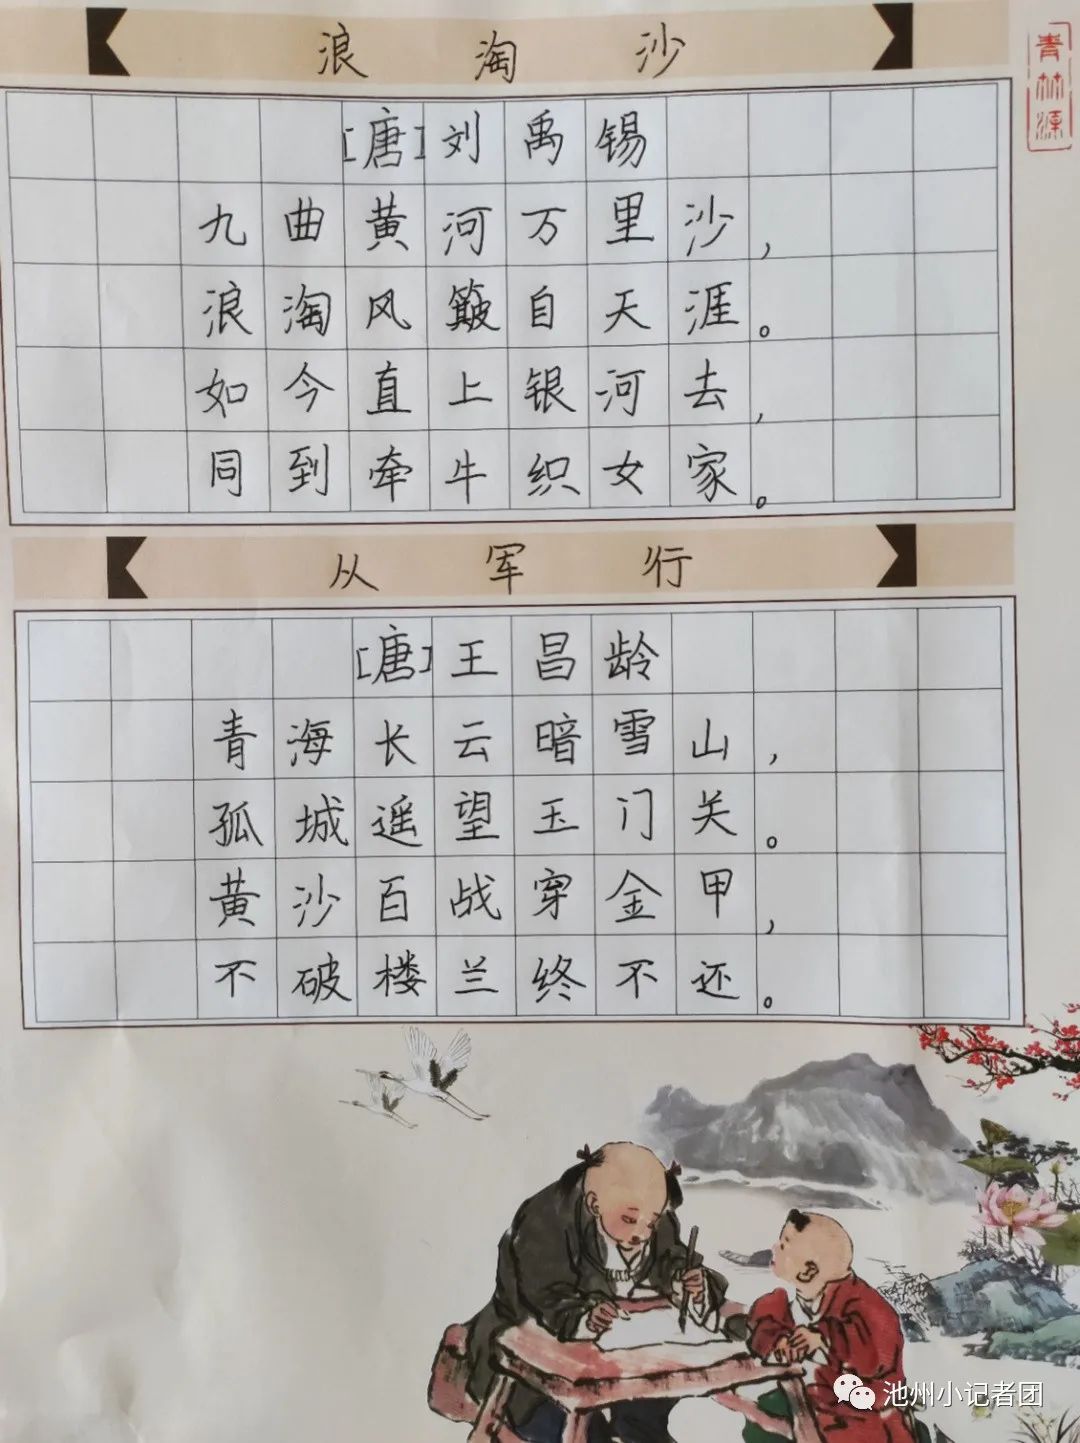 浪淘沙
[唐]刘禹锡
九曲黄河万里沙,
浪淘风簸自天涯。
如今直上银河去,
同到牵牛织女家。
从军行
[唐]王昌龄
青海长云暗雪山,
孤城遥望玉门关。
黄沙百战穿金甲,
不破楼兰终不还。
青林源
池州小记者团